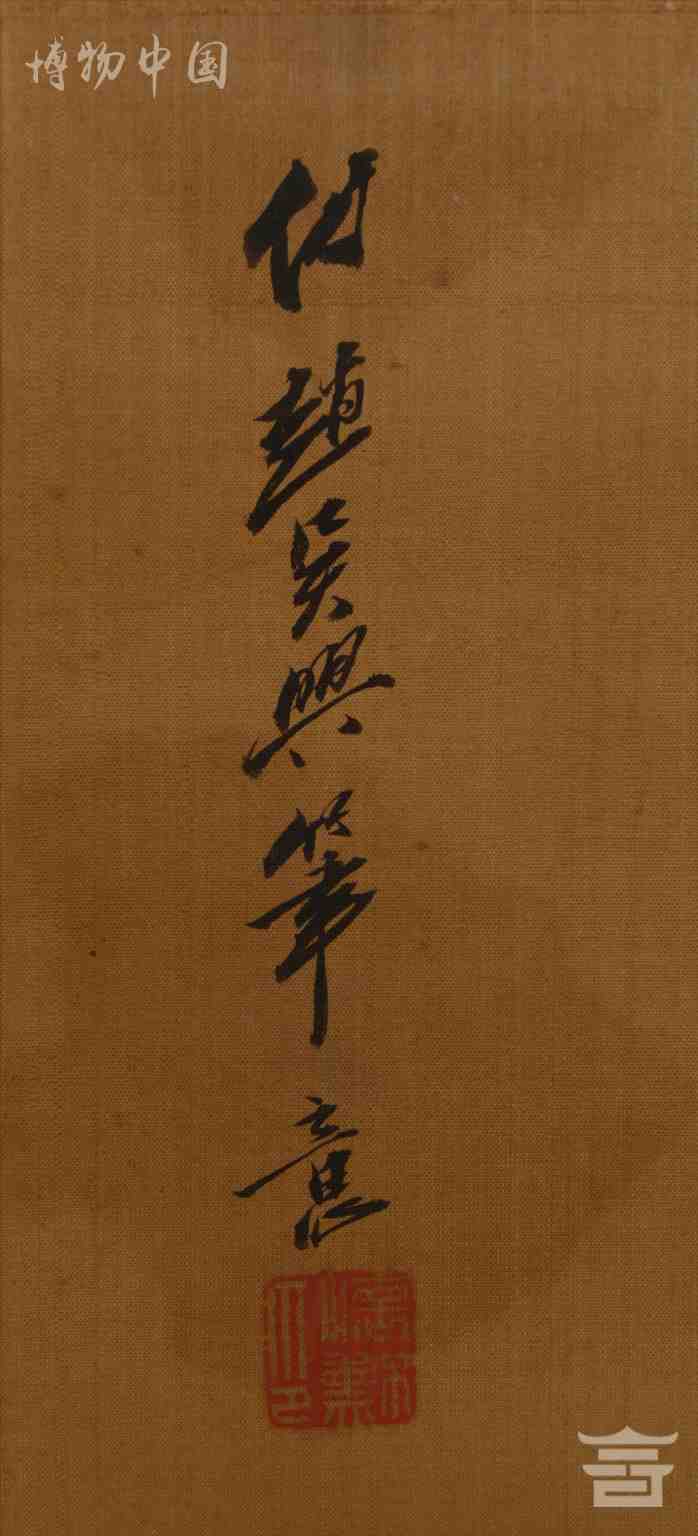 博物中国
仿趙吴興筆意